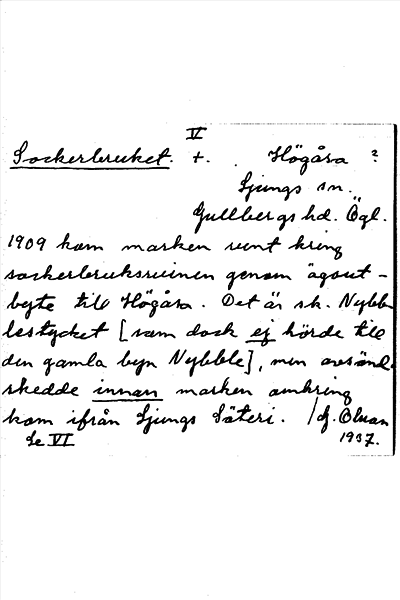 V
Sockerbruket. +. Högåsa ?
Ljungs sn.
Gullbergs hd. Ögl.
1909 kom marken runt kring
sockerbruksruinen genom ägout-
byte till Högåsa. Det är sk. Nybb
lestycket [som dock ej hörde till
den gamla byn Nybble], men
skedde innan marken omkring
kom ifrån Ljungs Säteri. /
Se VI 1937.